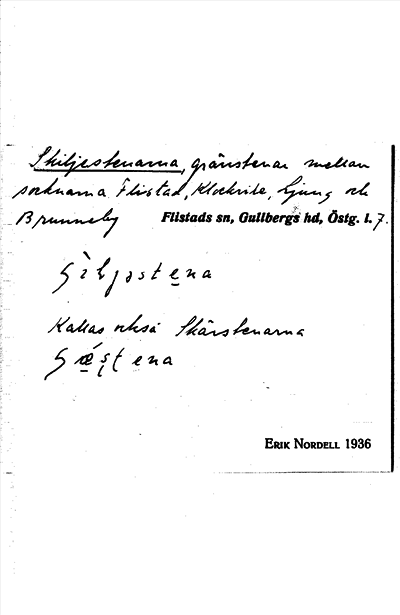 Skiljestenarna, gränstenar mellan
socknarna Flistad, Klockrike, Ljung och
Brunneby Flistads sn, Gullbergs hd, Östg. l. 7.
Kallas också Skärstenarna
ERIK NORDELL 1936